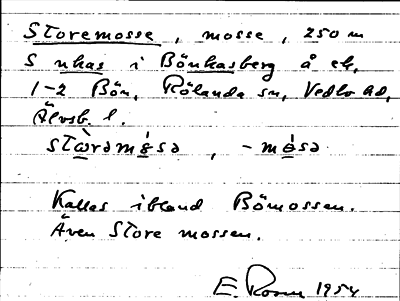 Storemosse, mosse, 250 m
S uhas i Bönhasberg å ek.
1-2 Bön, Rölanda sn, Vedbo hd,
Älvsb. l.
stɷ̀rəmɷ́sə, -mɷsə
Kallas ibland Bömossen.
Även Store mossen.
E. 1954